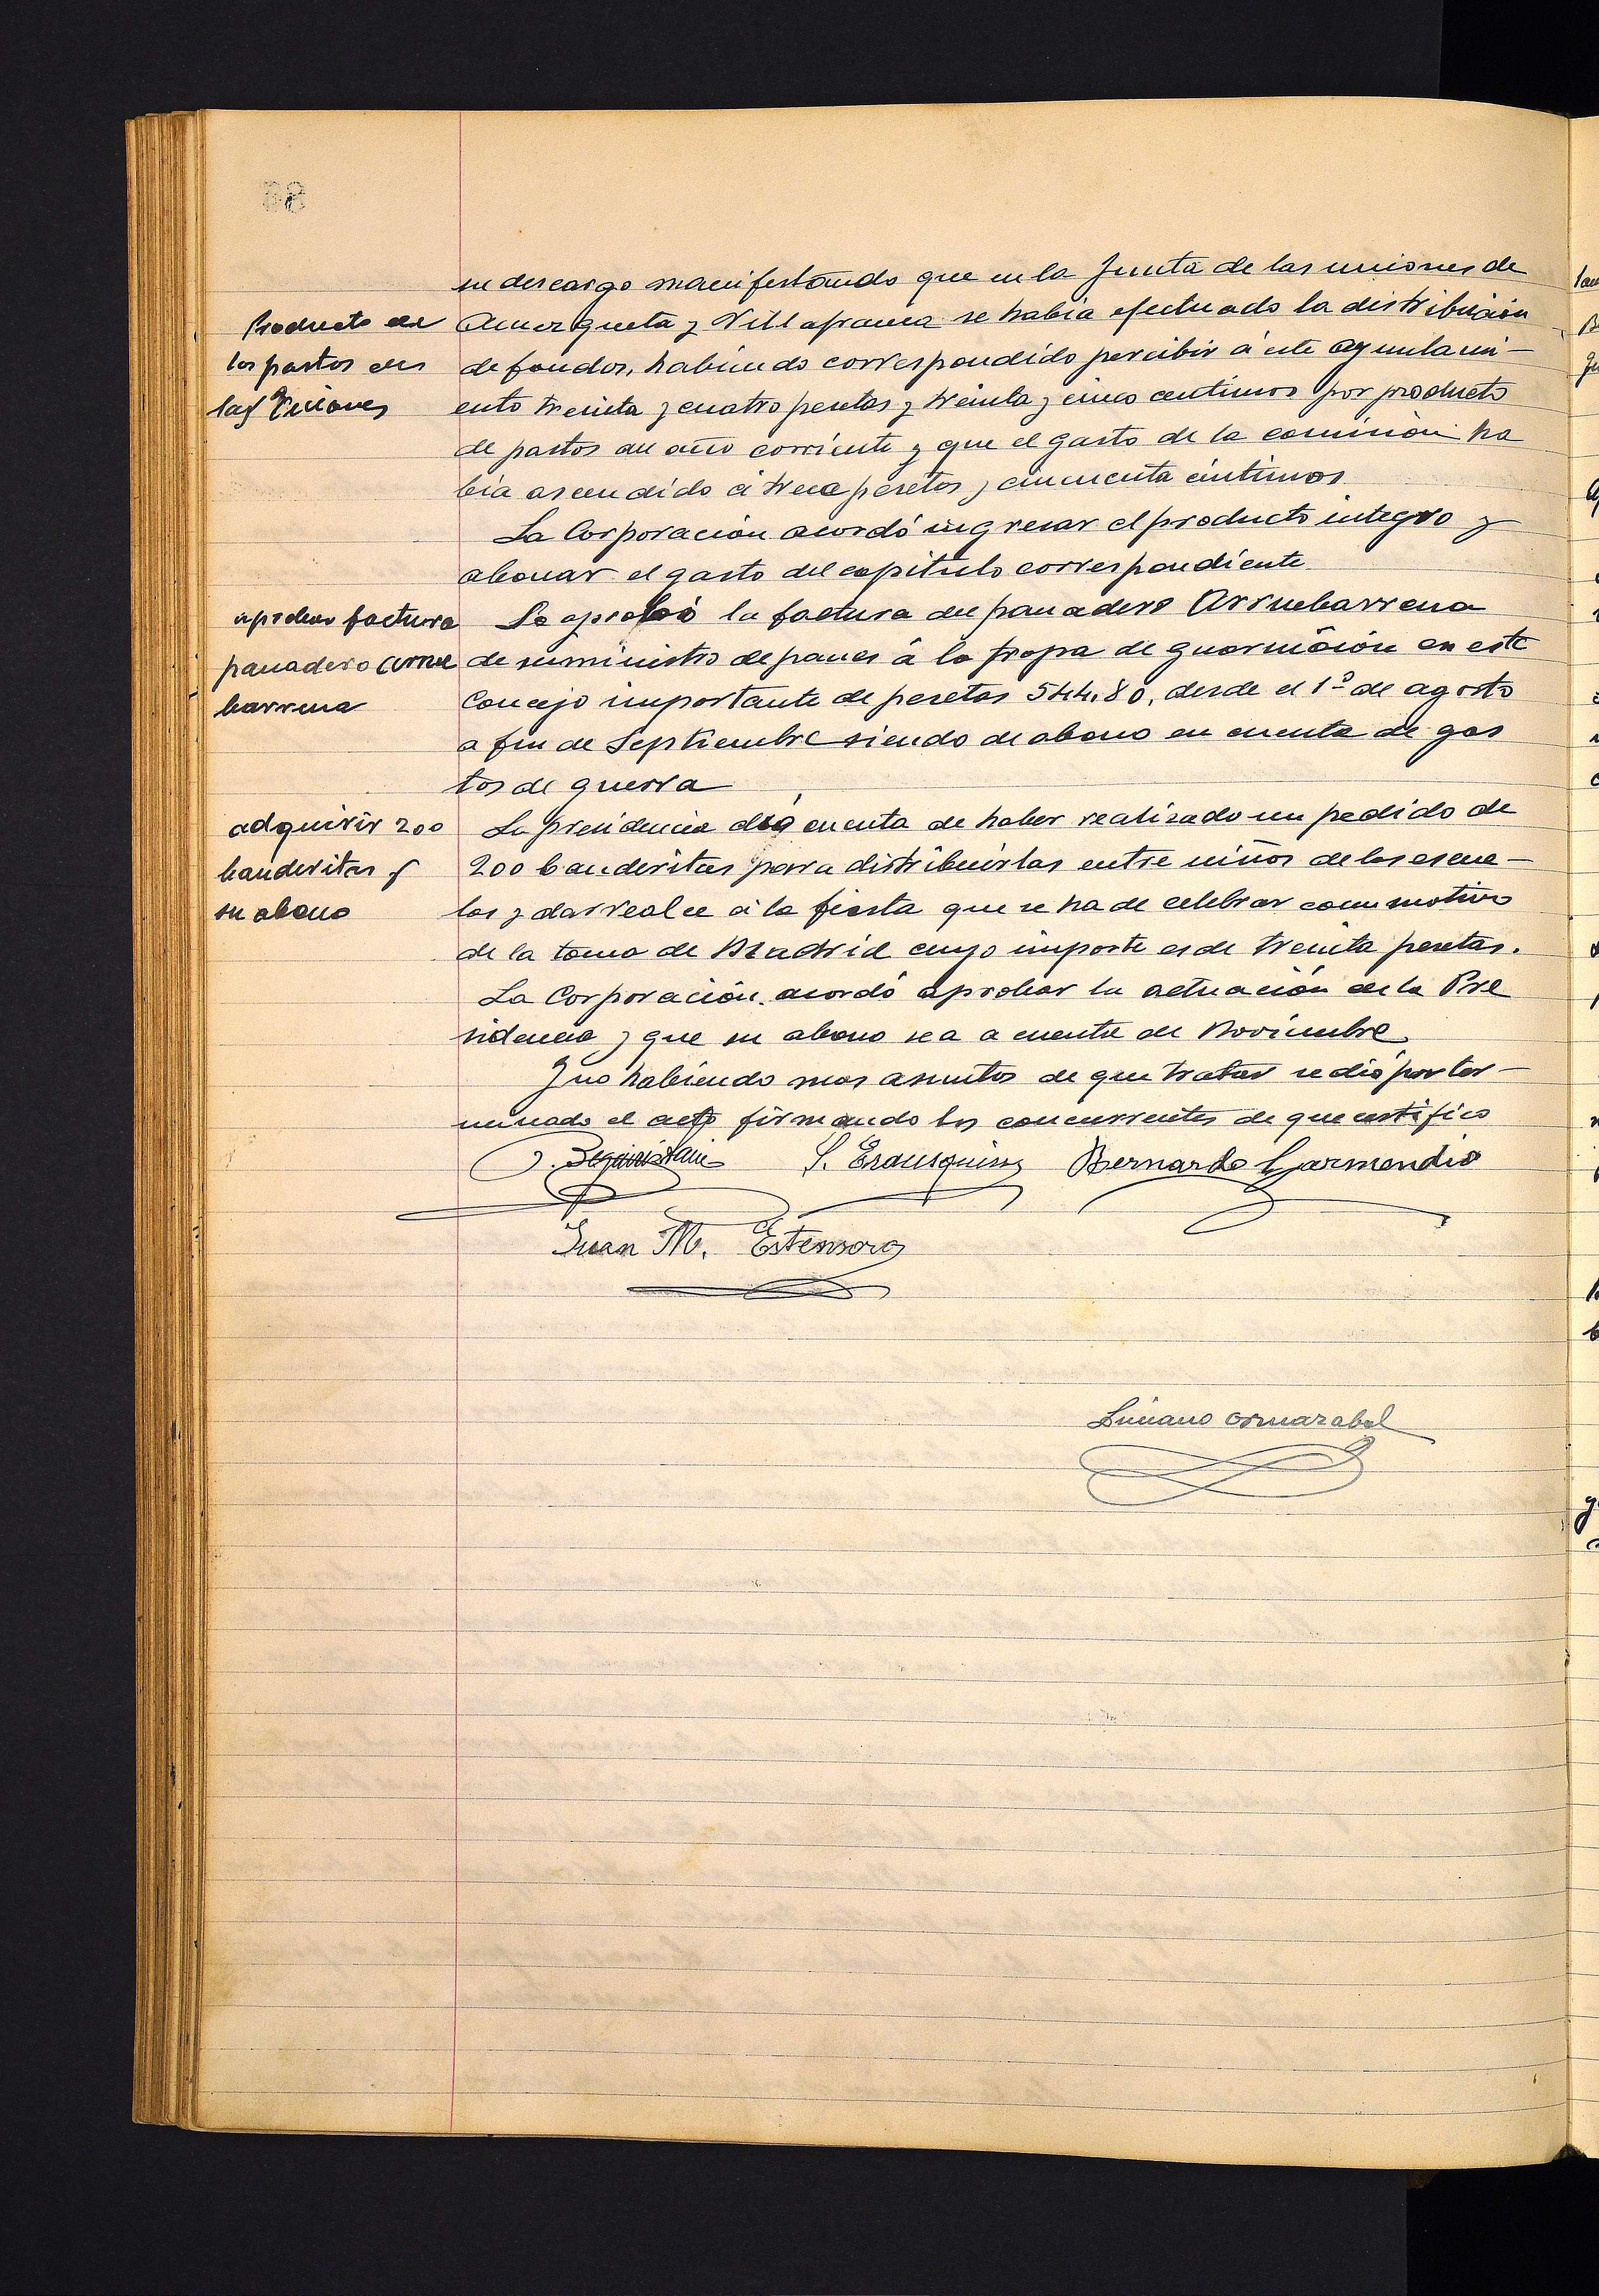 su descargo manifestando que en la Junta de las uniones de
Producto de
los pastos de
las Uniones
Amezqueta y Villafranca se habia efectuado la distribución
de fondos, habiendo correspondido percibir á este ayuntami-
ento treinta y cuatro pesetas y treinta y cinco centimos por producto
de pastos del año corriente y que el gasto de la comisión ha
bia ascendido á trece pesetas y cincuenta céntimos.
La Corporación acordó ingresar el producto integro y
abonar el gasto del capitulo correspondiente.
aprobar factura
panadero Arrue
barrena
Se aprobó la factura del panadero Arruebarrena
de suministro de panes á la tropa de guarnición en este
Concejo importante de pesetas 544,80, desde el 1º de agosto
a fin de Septiembre siendo de abono en cuenta de gas
tos de guerra
adquirir 200
banderitas y
su abono
La presidencia dió cuenta de haber realizado un pedido de
200 banderitas para distribuirlas entre niños de las escue-
las y dar realce á la fiesta que se ha de celebrar con motivo
de la toma de Madrid cuyo importe es de treinta pesetas.
La Corporación acordó aprobar la actuación de la Pre
sidencia y que su abono sea a cuenta de Noviembre.
Y no habiendo mas asuntos de que tratar se dió por ter-
minado el acto firmando los concurrentes de que certifico
J. Beguiristain S. Erausquin Bernardo Garmendia
Juan M. Estensoro
Luciano Ormazabal